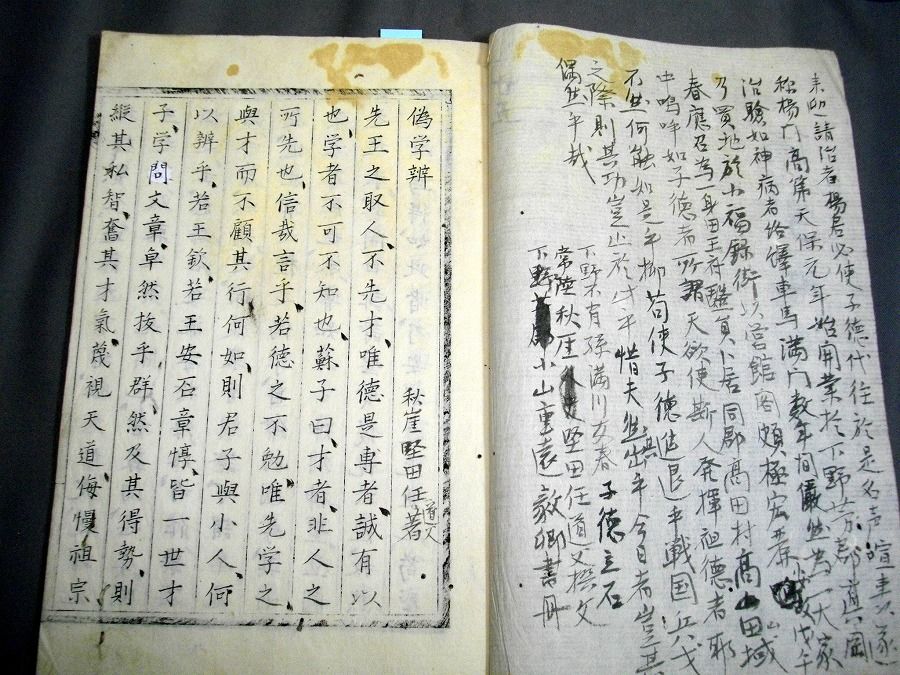 請治者楊君必使子德代往於是名声喧
称楊门高第天保元年始開業於下野芳郡真岡
治驗如神病者給驛車馬満门数年间儼然為一大家
乃買地於小福録街以营館阁頗極宏 戊午
春應召為一身田王府醫員卜居同郡髙田村髙田域
中嗚呼如子德者所謂天欲使斯人発揮祖德者耶
不然何能如是乎抑苟使子德進退乎戦国兵戈
之際則其功豈止於 乎惜夫 出乎今日者豈其
偶然乎哉
子德立石
下野不有孫満川 春
常陸秋崖 堅田任道文撰文
下野 小山重遠敬卿書丹
偽学辨
秋崖堅田任道文著
先王之取人、不先才唯德是專者誠有以
也、学者不可不知也、蘇子曰、才者、非人之
所先也、信哉言乎、若德之不勉唯先学之
與才而不顧其行何如、則君子與小人、何
以辨乎、若王欽、若王安石章惇、皆一世才
子、学問文章卓然拔乎群、然及其得勢、則
縱其私智、奮其才氣、蔑視天道、侮慢祖宗